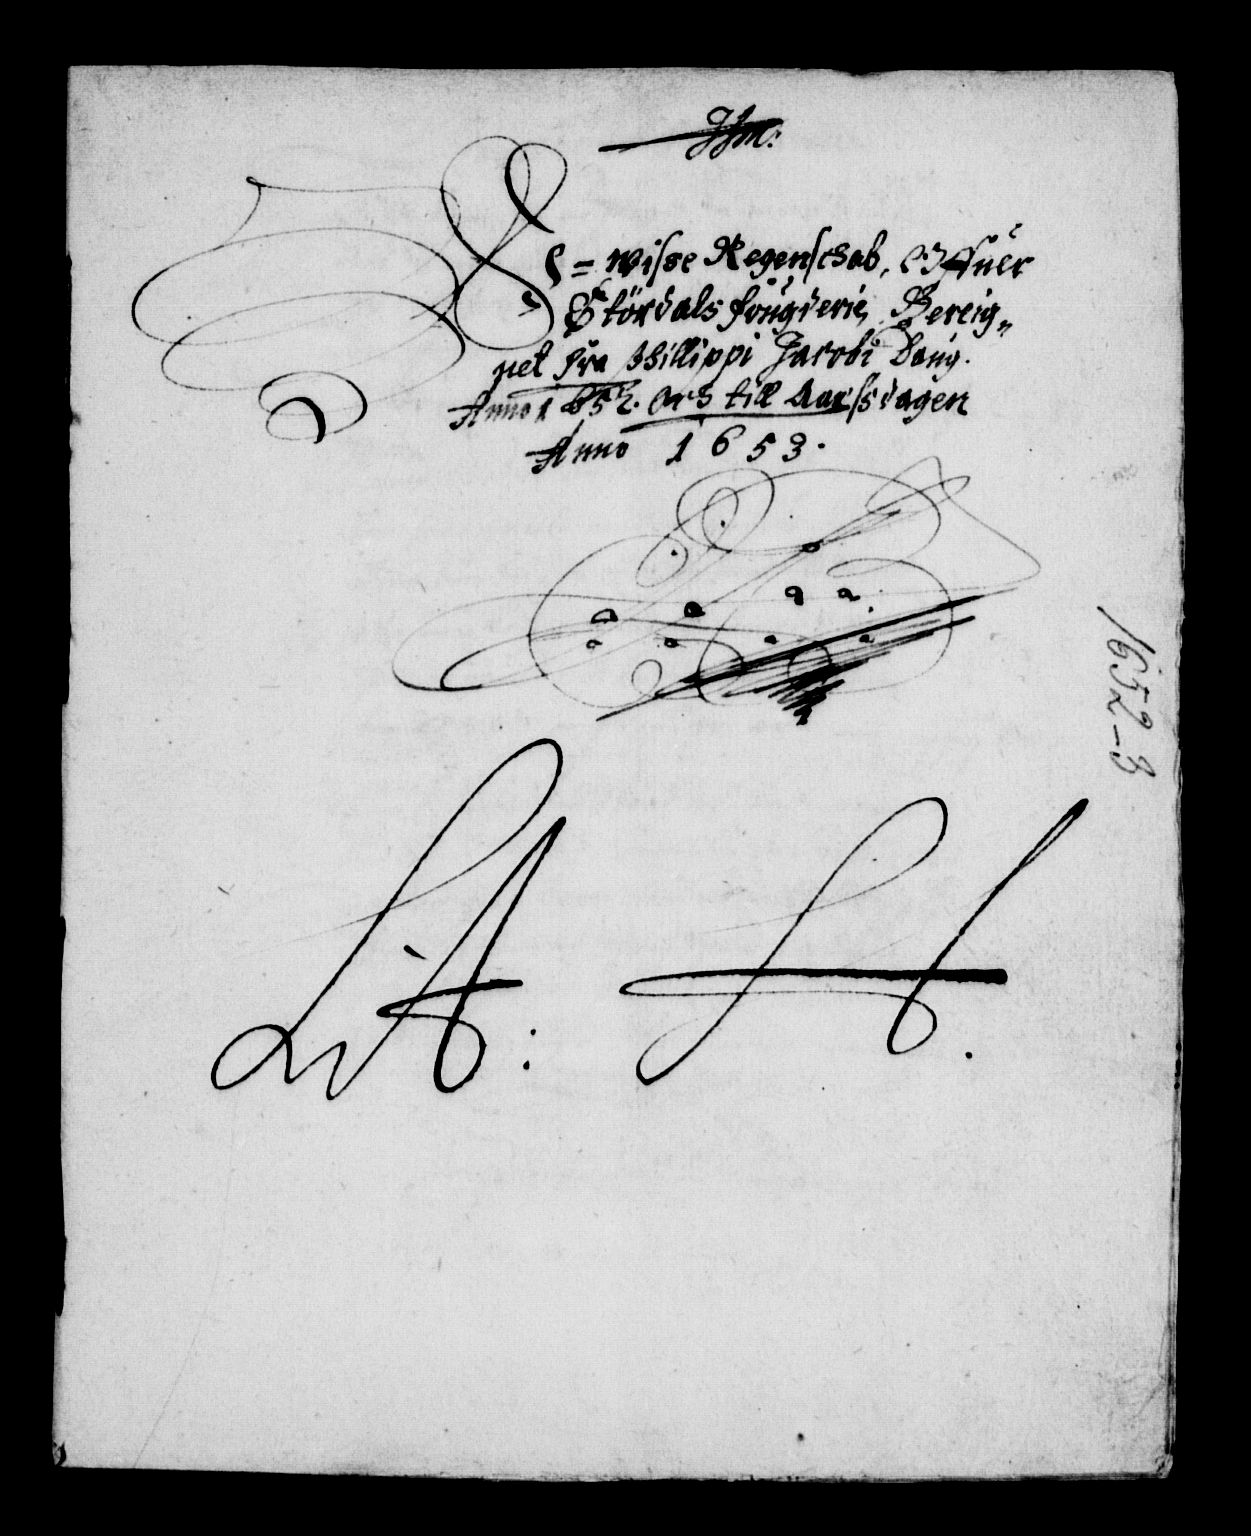 Wisse Regenschab, Offuer
Stördals fougderie, Bereig„
net fra Phillippi Jacobi Daug.
Anno 1652. Och till Aarssdagen
Anno 1653.
1652–3
Lit: H.